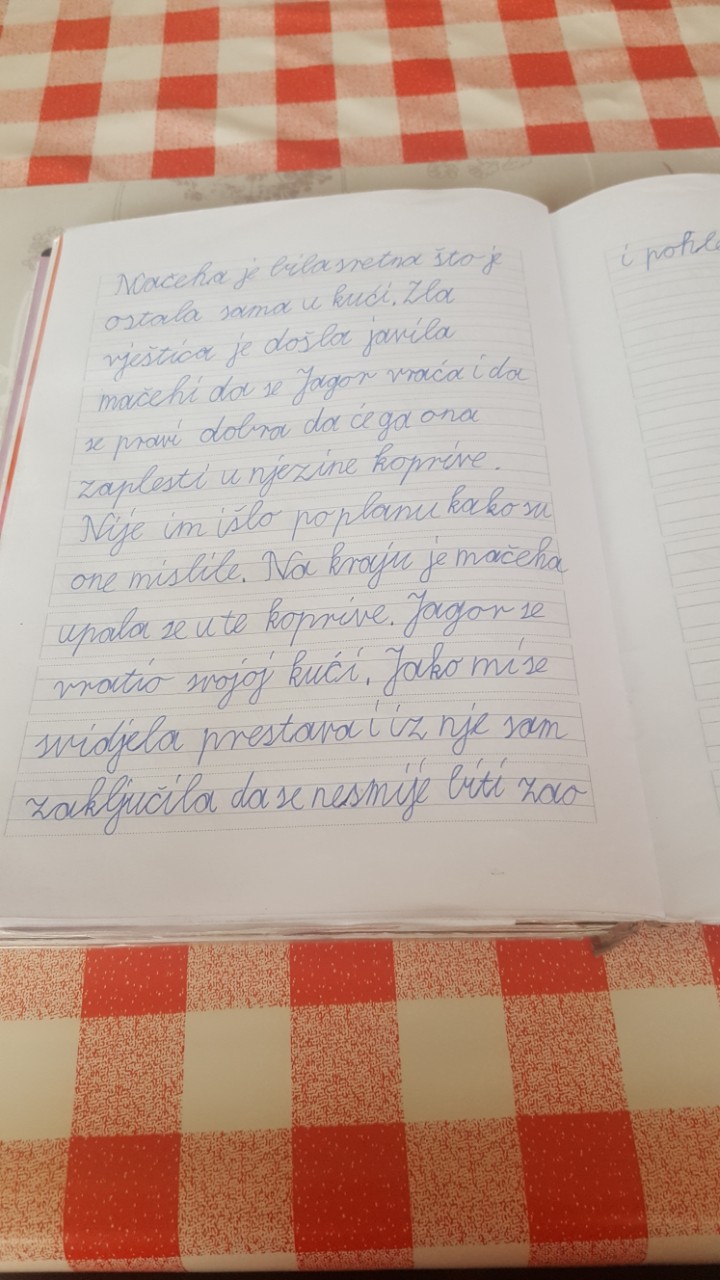 Maćeha je bila sretna što je
ostala sama u kući. Zla
vještica je došla javila
mačehi da se Jagor vraća i da
se pravi dobra da će ga ona
zaplesti u njezine koprive.
Nije im išlo po planu kako su
one mislile. Na kraju je mačeha
upala se u te koprive. Jagor se
vratio svojoj kući. Jako mi se
svidjela prestava i iz nje sam
zaključila da se nesmije biti zao
i pohle